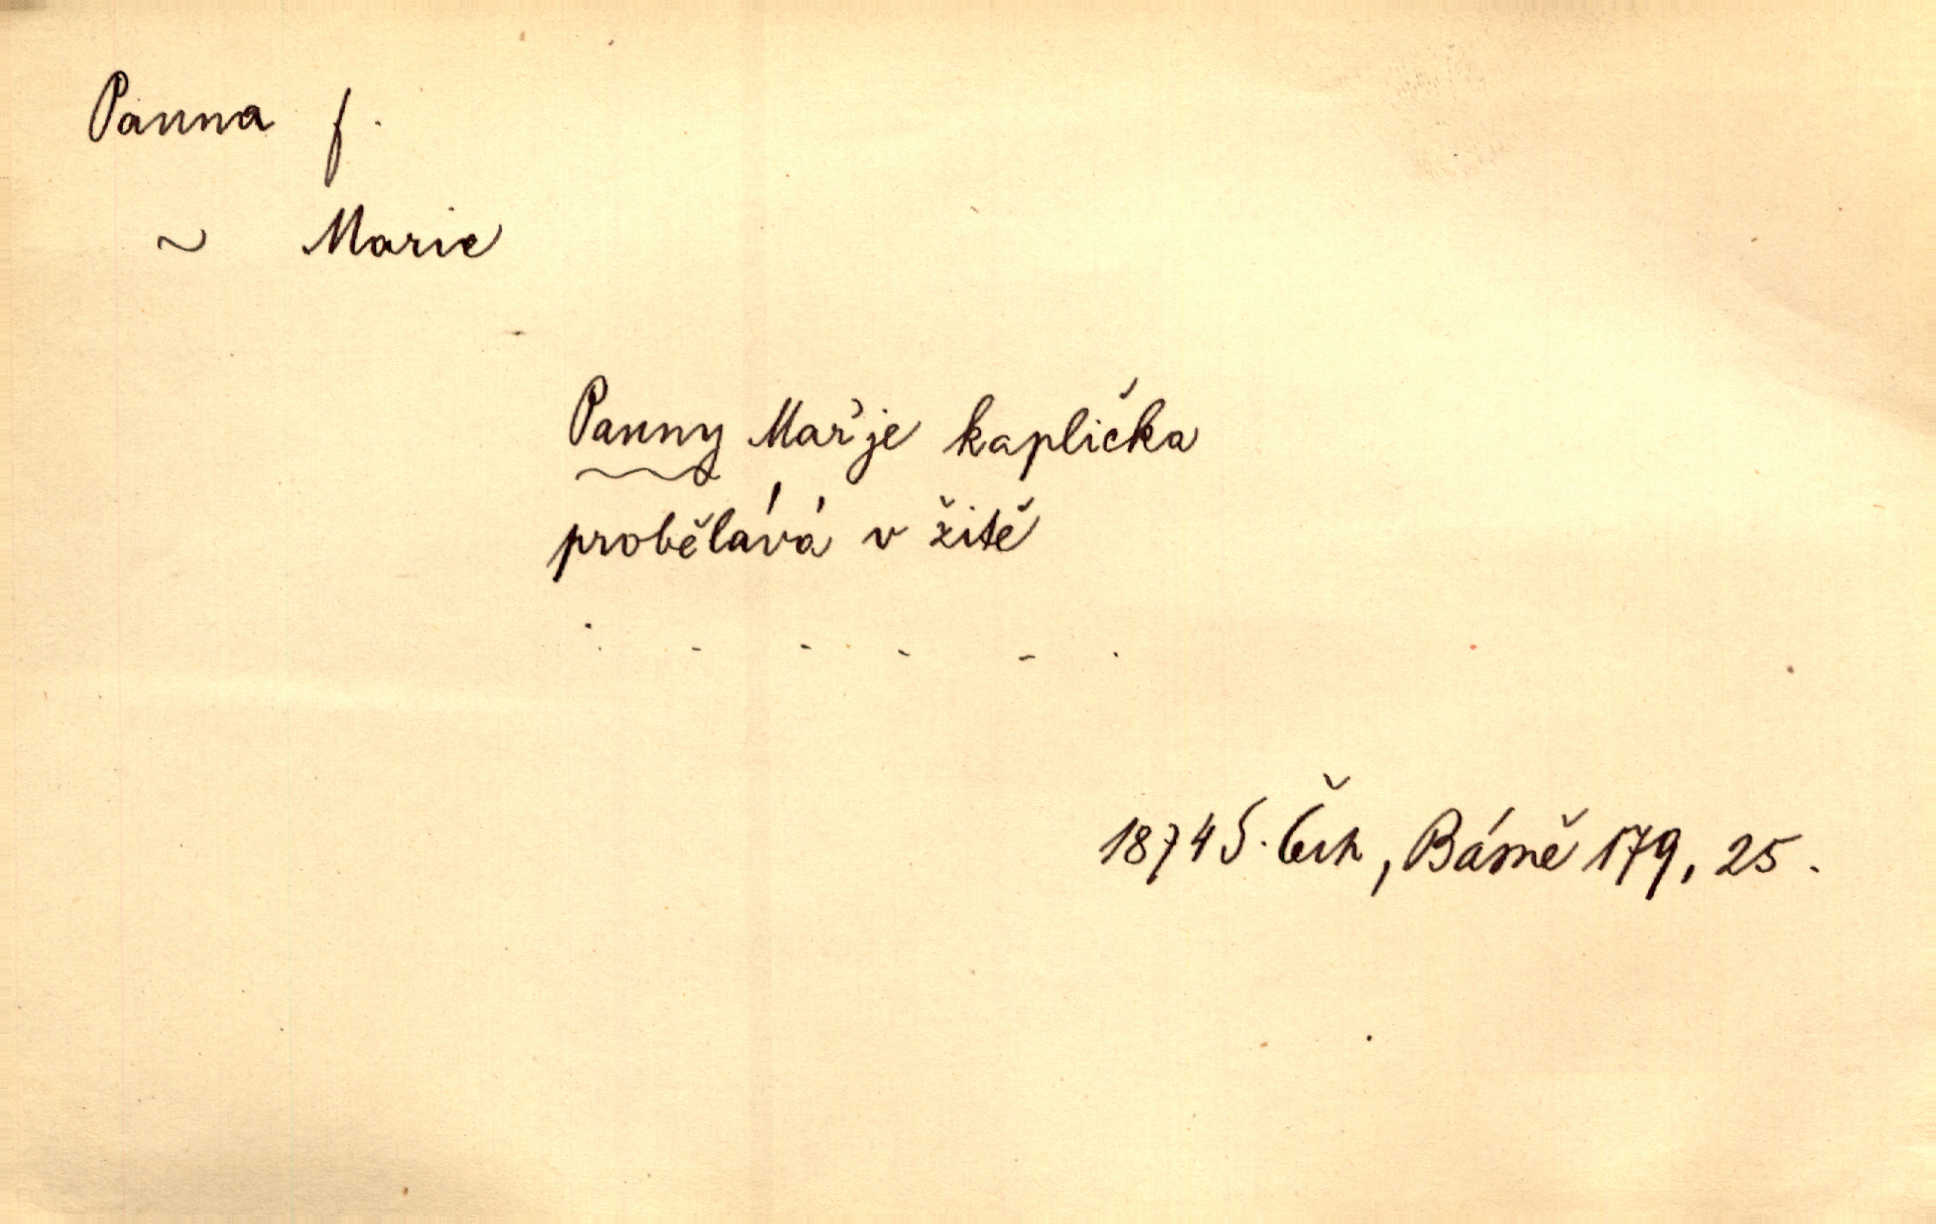 Panna f.
~ Marie
Panny Mar'je kaplička
probělává v žitě
. - - - - .
1874 S. Čech, Básně 179, 25.